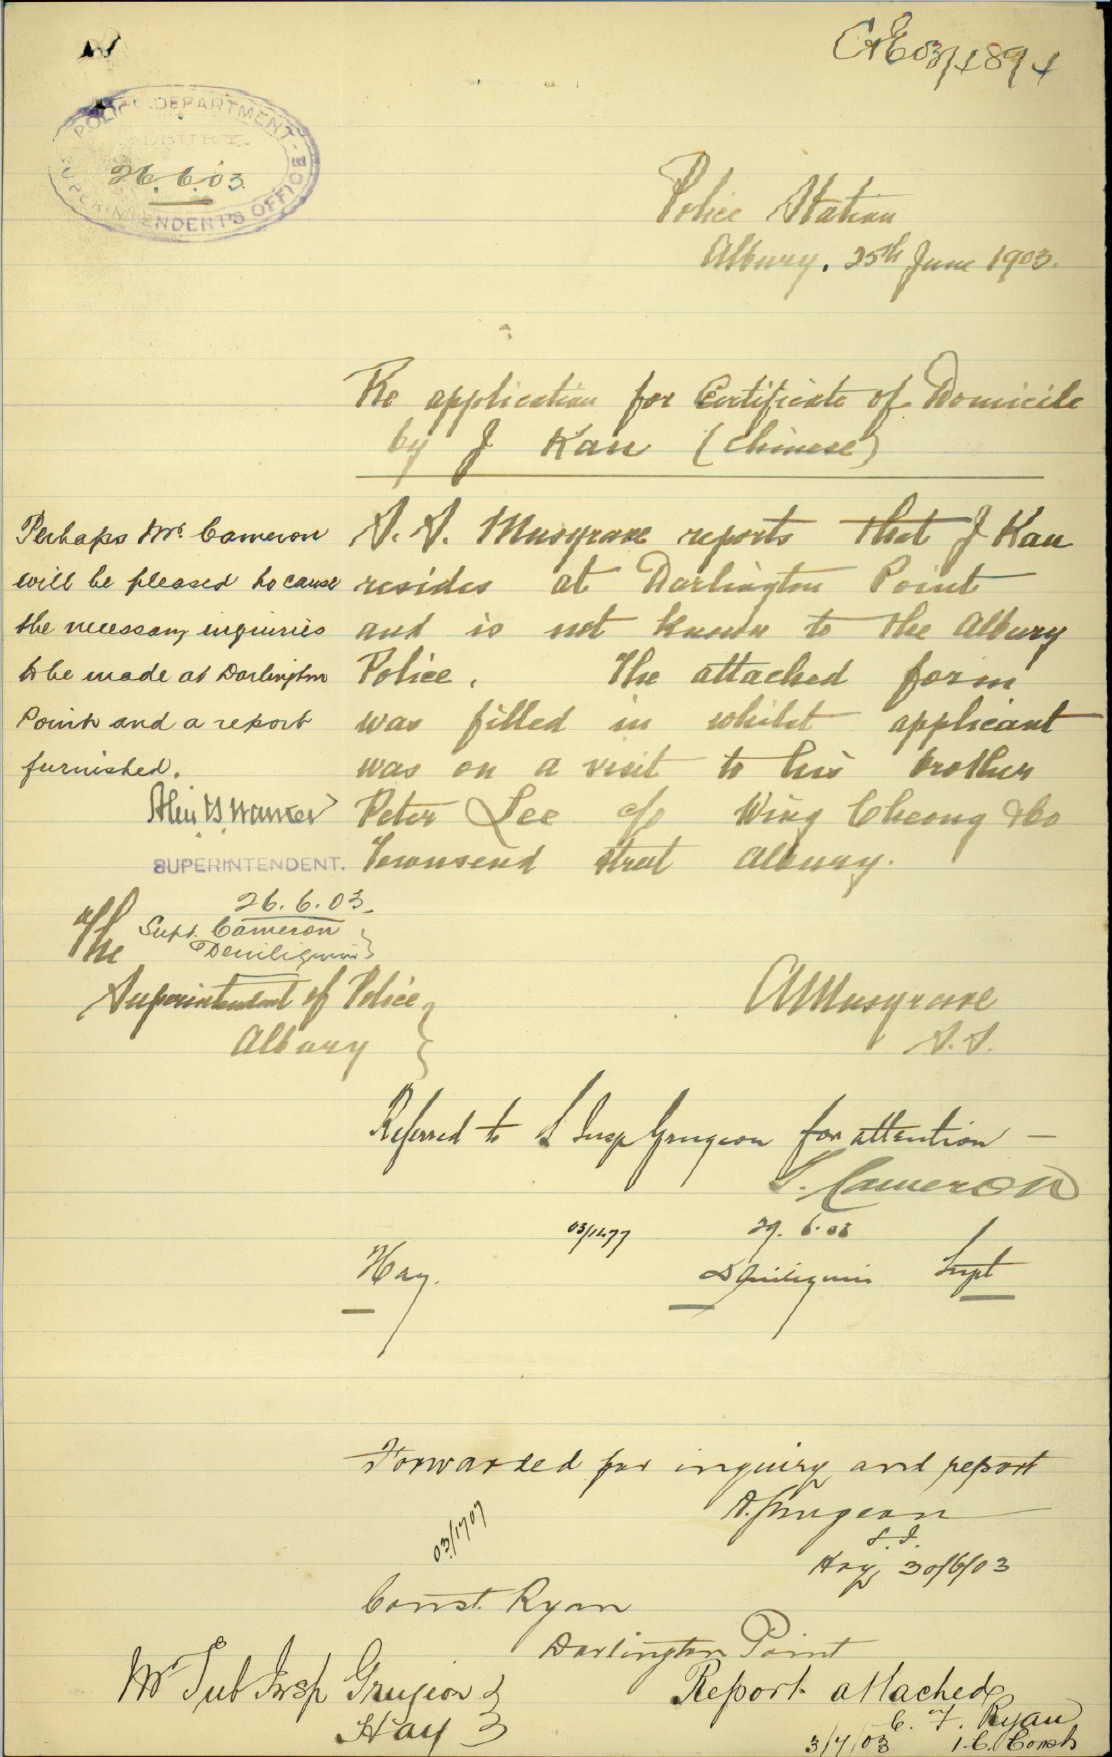 C&E 03/4894
POLICE DEPARTMENT
ALBURY
26.6.03.
SUPERINTENDENT'S OFFICE
Police Station
Albury. 25th June 1903.
Re application for Certificate of Domicile
by J Kau (Chinese)
S. S. Musgrave reports that J Kau
resides at Darlington Point
and is not known to the Albury
Police. The attached form
was filled in whilst applicant
was on a visit to his brother
Peter Lee c/o Wing Cheong & Co
Townsend street Albury.
AMusgrave
S.S.
The
Superintendent of Police
Albury
Perhaps Mr. Cameron
will be pleased to cause
the necessary inquiries
to be made at Darlington
Point and a report
furnished.
SUPERINTENDENT.
26.6.03.
Supt. Cameron
Deniliquin
Referred to S Insp Grugeon for attention —
S. Cameron
29. 6. 03
03/1477
Deniliquin Supt
Hay.
Forwarded for inquiry and report
A. Grugeon
S. I.
Hay 30/6/03
03/1707
Const. Ryan
Darlington Point
Mr Sub Insp Grugeon
Hay
Report attached
C. F. Ryan
3/7/03 1.C. Const